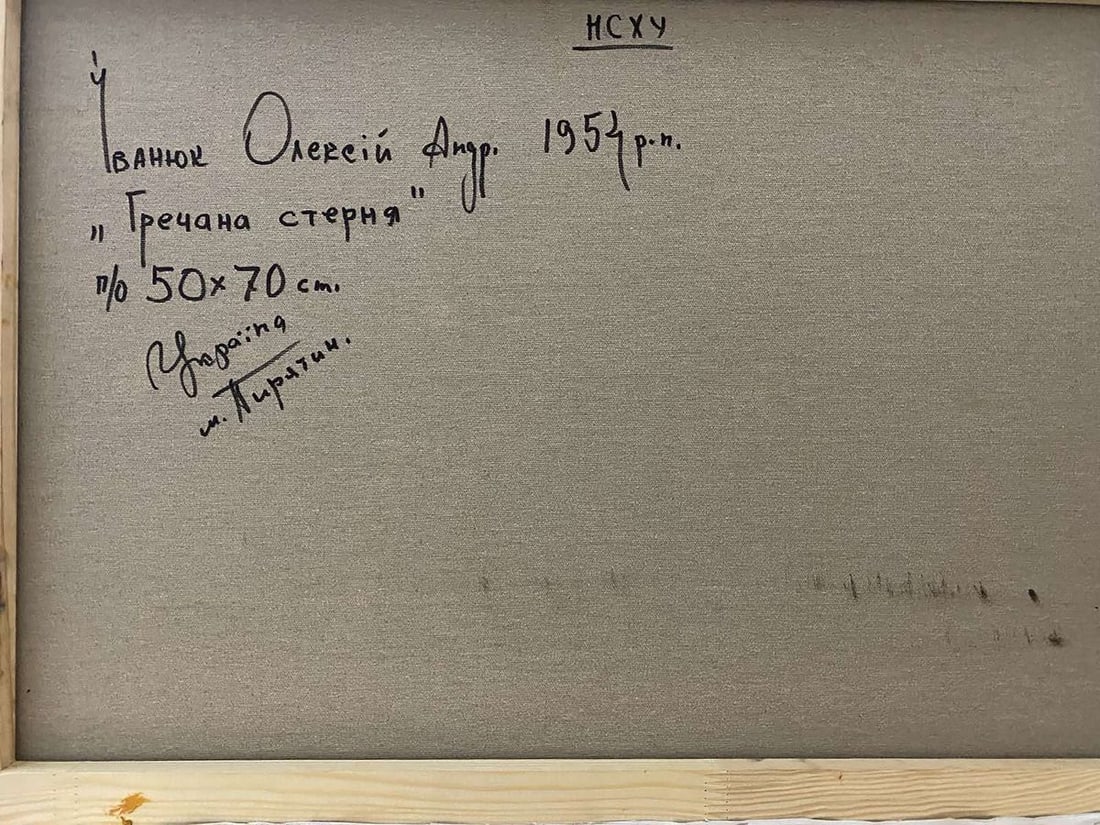 НСХУ
Іванюк Олексій Андр. 1954 р.н.
„Гречана стерня"
п/о 50×70 см.
Україна
м. Пирятин.